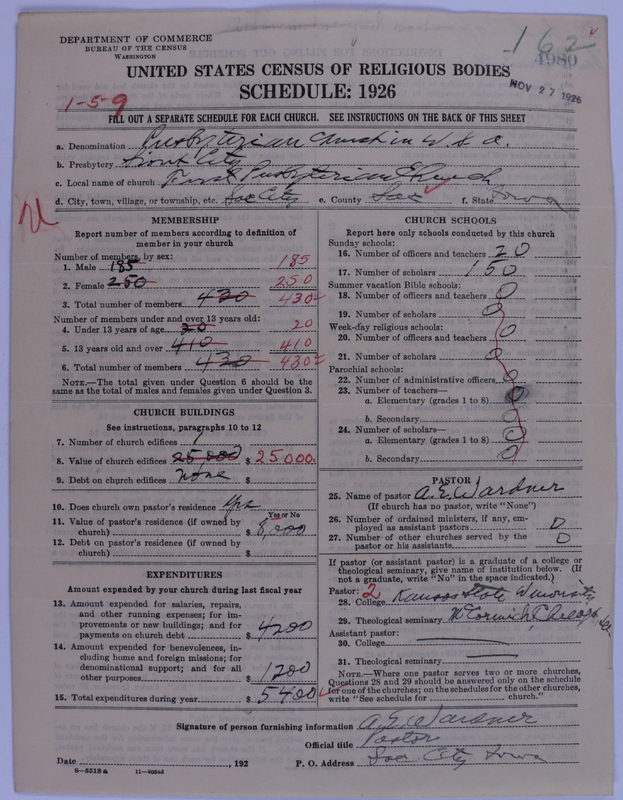 DEPARTMENT OF COMMERCE
BUREAU OF THE CENSUS
WASHINGTON
162
4980
NOV 27 1926
UNITED STATES CENSUS OF RELIGIOUS BODIES
SCHEDULE: 1926
1-5-9
FILL OUT A SEPARATE SCHEDULE FOR EACH CHURCH. SEE INSTRUCTIONS ON THE BACK OF THIS SHEET
a. Denomination Presbyterian Church in U.S.A.
b. Presbytery Sioux City
c. Local name of church First Presbyterian Church
d. City, town, village, or township, etc. Sac City e. County Sac f. State Iowa
MEMBERSHIP
Report number of members according to definition of
member in your church
Number of members, by sex:
1. Male 185 185
2. Female 250 250
3. Total number of members 430 430
Number of members under and over 13 years old:
4. Under 13 years of age 20 20
5. 13 years old and over 410 410
6. Total number of members 430 430
NOTE.—The total given under Question 6 should be the
same as the total of males and females given under Question 3.
CHURCH BUILDINGS
See instructions, paragraphs 10 to 12
7. Number of church edifices 1
8. Value of church edifices 25,000 $ 25000.
9. Debt on church edifices none $
10. Does church own pastor's residence Yes
Yes or No
11. Value of pastor's residence (if owned by
church) $ 8,000
12. Debt on pastor's residence (if owned by
church) $
EXPENDITURES
Amount expended by your church during last fiscal year
13. Amount expended for salaries, repairs,
and other running expenses; for im-
provements or new buildings; and for
payments on church debt $ 4200
14. Amount expended for benevolences, in-
cluding home and foreign missions; for
denominational support; and for all
other purposes $ 1200
15. Total expenditures during year $ 5400
CHURCH SCHOOLS
Report here only schools conducted by this church
Sunday schools:
16. Number of officers and teachers 20
17. Number of scholars 150
Summer vacation Bible schools:
18. Number of officers and teachers 0
19. Number of scholars 0
Week-day religious schools:
20. Number of officers and teachers 0
21. Number of scholars 0
Parochial schools:
22. Number of administrative officers 0
23. Number of teachers—
a. Elementary (grades 1 to 8) 0
b. Secondary 0
24. Number of scholars—
a. Elementary (grades 1 to 8) 0
b. Secondary 0
PASTOR
25. Name of pastor A. E. Wardner
(If church has no pastor, write "None")
26. Number of ordained ministers, if any, em-
ployed as assistant pastors 0
27. Number of other churches served by the
pastor or his assistants 0
If pastor (or assistant pastor) is a graduate of a college or
theological seminary, give name of institution below. (If
not a graduate, write "No" in the space indicated.)
Pastor: 2
28. College Kansas State University
29. Theological seminary McCormick
Assistant pastor:
30. College
31. Theological seminary
NOTE.—Where one pastor serves two or more churches,
Questions 28 and 29 should be answered only on the schedule
for one of the churches; on the schedules for the other churches,
write "See schedule for church."
Signature of person furnishing information A. E. Wardner
Official title Pastor
Date , 192 P. O. Address Sac City Iowa
8-5518a